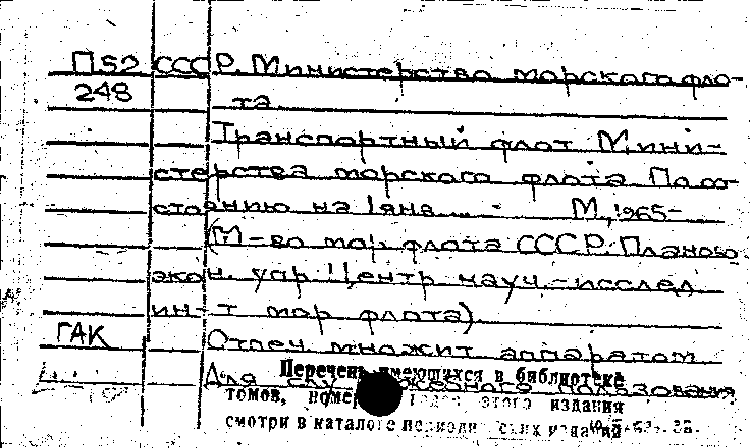 П52 СССР. Министерство морского фло-
248 та
Транспортный флот Мини-
стерства морского флота По со-
стоянию на 1 янв. ... - М., 1965-
(М-во мор. флота СССР. Планово-
экон. упр. Центр. науч.-исслед.
ин-т мор. флота).
ГАК Отпеч. множит. аппаратом
Для служебного пользования
Перечень имеющихся в библиотеке
томов, номеров, годов этого издания
смотри в каталоге периодических изданий